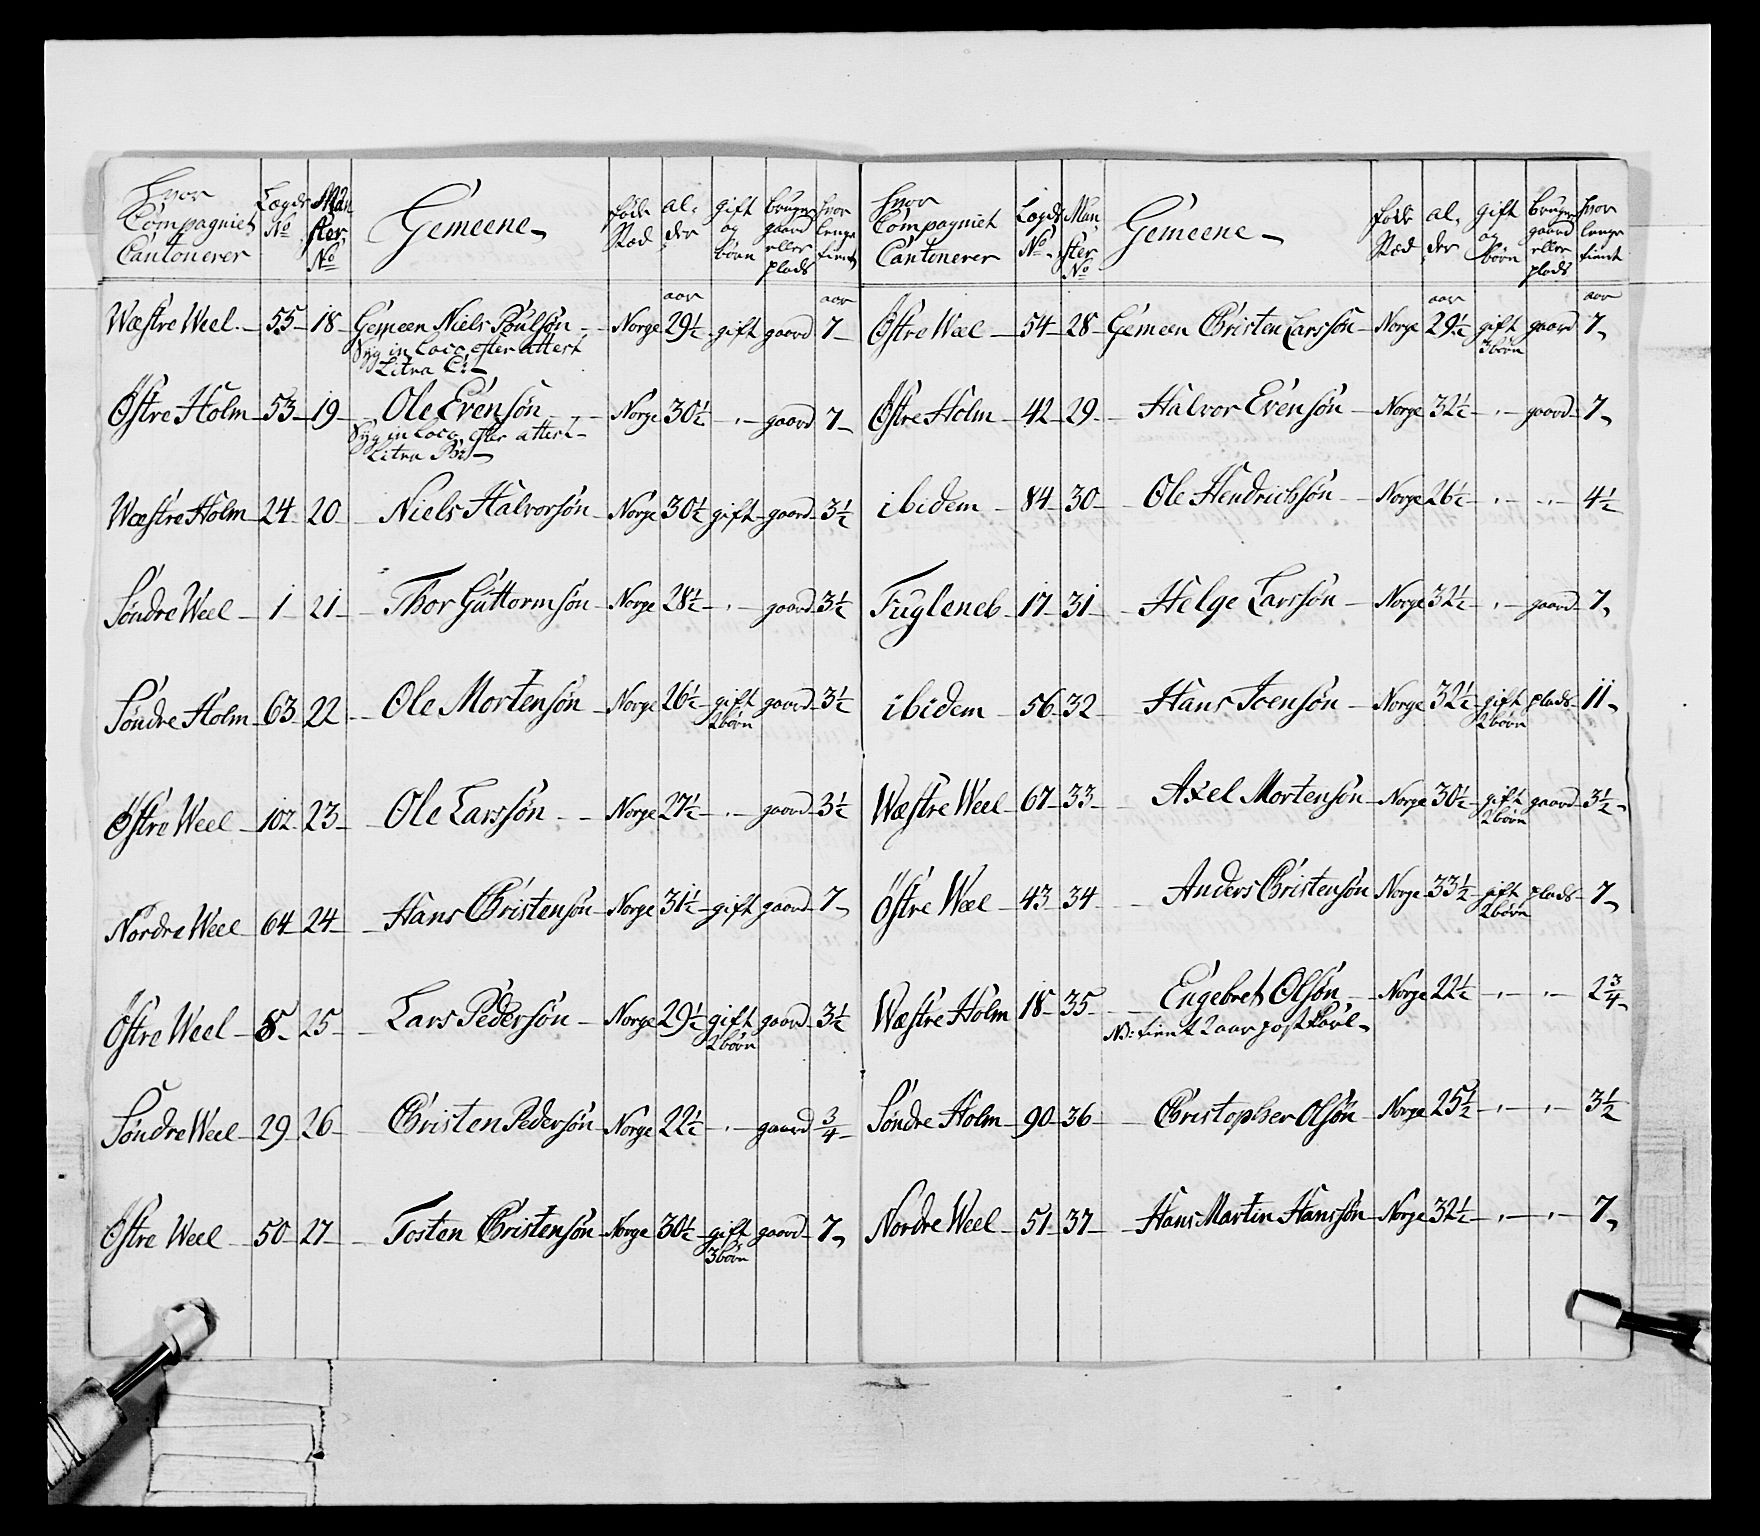 hvor Compagniet Cantonerer | Lægds No | Mynster No | Gemeene | føde Stæd | alder | gift og børn | bruger gaard eller plads | hvor længe tient
Wæstre Weel | 55 | 18 | Gemeen Niels Poulsøn | Norge | aar 29½ | gift | gaard | aar 7
Syg in loco efter attest
Litra C:
Østre Holm | 53 | 19 | Ole Evensøn | Norge | 30½ | " | gaard | 7
Syg in loco efter attest
Litra
Wæstre Holm | 24 | 20 | Niels Halvorsøn | Norge | 30½ | gift | gaard | 3½
Søndre Weel | 1 | 21 | Thor Guttormsøn | Norge | 28½ | " | gaard | 3½
Søndre Holm | 63 | 22 | Ole Mortensøn | Norge | 26½ | gift 2 børn | gaard | 3½
Østre Weel | 102 | 23 | Ole Larssøn | Norge | 27½ | " | gaard | 3½
Nordre Weel | 64 | 24 | Hans Christensøn | Norge | 31½ | gift | gaard | 7
Østre Weel | 8 | 25 | Lars Pedersøn | Norge | 29½ | gift 2 børn | gaard | 3½
Søndre Weel | 29 | 26 | Christen Pedersøn | Norge | 22½ | " | gaard | ¾
Østre Weel | 50 | 27 | Tosten Christensøn | Norge | 30½ | gift 3 børn | gaard | 7
hvor Compagniet Cantonerer | Lægds No | Mynster No | Gemeene | føde Stæd | alder | gift og børn | bruger gaard eller plads | hvor længe tient
Østre Weel | 54 | 28 | Gemeen Christen Larssøn | Norge | aar 29½ | gift 3 børn | gaard | aar 7
Østre Holm | 42 | 29 | Halvor Evensøn | Norge | 32½ | " | gaard | 7
ibidem | 84 | 30 | Ole Hendrichsøn | Norge | 26½ | " | " | 4½
Fugleneb | 17 | 31 | Helge Larssøn | Norge | 32½ | " | gaard | 7
ibidem | 56 | 32 | Hans Joensøn | Norge | 32½ | gift 2 børn | plads | 11
Wæstre Weel | 67 | 33 | Axel Mortensøn | Norge | 30½ | gift 2 børn | gaard | 3½
Østre Weel | 43 | 34 | Anders Christensøn | Norge | 33½ | gift 2 børn | plads | 7
Wæstre Holm | 18 | 35 | Engebret Olsøn | Norge | 22½ | " | " | 2¾
NB: tient 2 aar
Søndre Holm | 90 | 36 | Christopher Olsøn | Norge | 25½ | " | " | 3½
Nordre Weel | 51 | 37 | Hans Martin Hanssøn | Norge | 32½ | " | " | 7